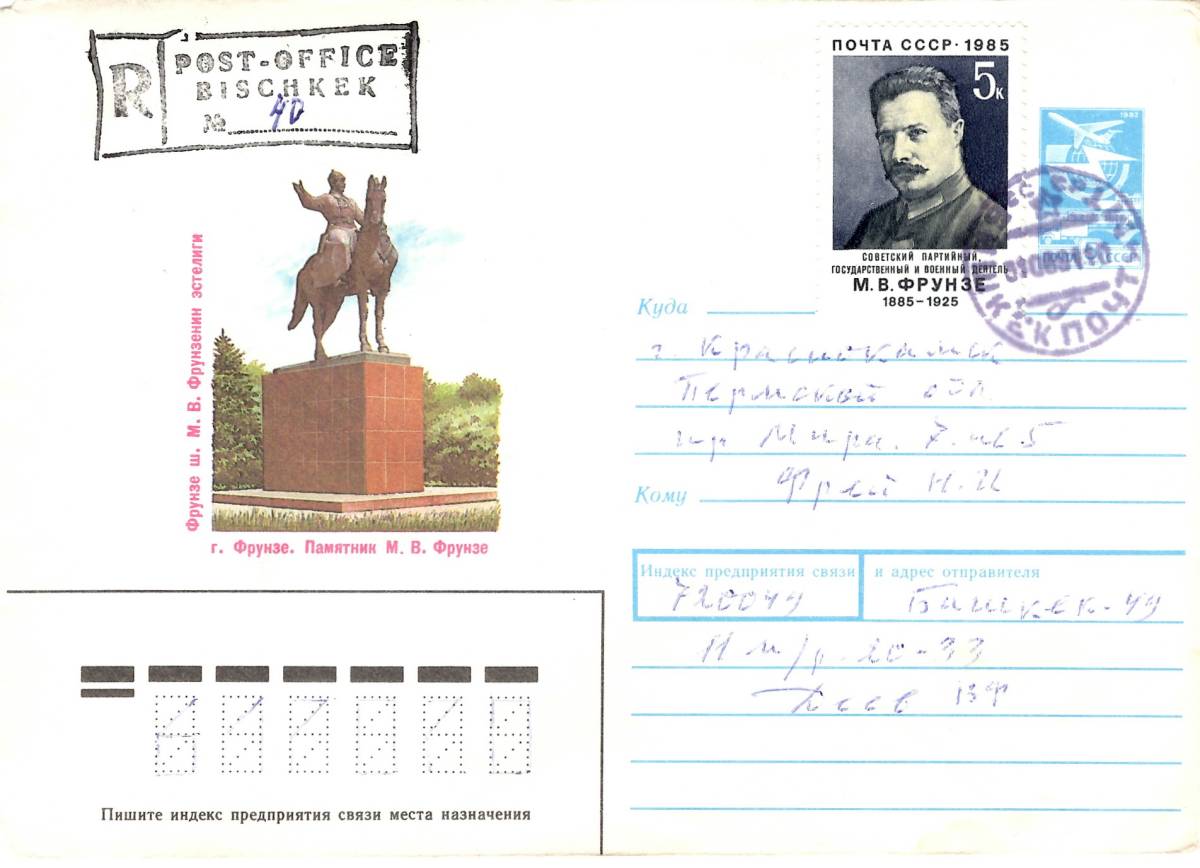 R
POST-OFFICE
BISCHKEK
№ 40
Фрунзе ш. М. В. Фрунзенин эстелиги
г. Фрунзе. Памятник М. В. Фрунзе
ПОЧТА СССР · 1985
5к
СОВЕТСКИЙ ПАРТИЙНЫЙ,
ГОСУДАРСТВЕННЫЙ И ВОЕННЫЙ ДЕЯТЕЛЬ
М. В. ФРУНЗЕ
1885–1925
1982
ПОЧТА СССР
Куда
г. Краснокамск
Пермской обл.
пр Мира. 7. кв 5
Кому
Фрей Н. И
Индекс предприятия связи
и адрес отправителя
720049
Бишкек-49
33
ВФ
Пишите индекс предприятия связи места назначения